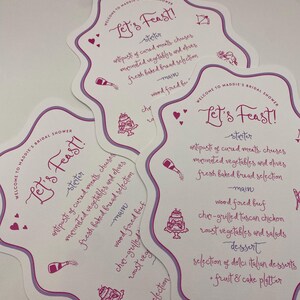 WELCOME TO MAGGIE'S BRIDAL SHOWER
Let's Feast!
starter
antipasti of cured meats, cheeses
marinated vegetables and olives
fresh baked bread selection
main
wood fired beef
WELCOME TO MAGGIE'S BRIDAL SHOWER
Let's Feast!
starter
antipasti of cured meats, cheeses
marinated vegetables and olives
fresh baked bread selection
main
wood fired beef
char-grilled tuscan chicken
roast vegetables and salads
dessert
selection of dolci italian desserts
+ fruit & cake platter
WELCOME TO MAGGIE'S BRIDAL SHOWER
Let's Feast!
starter
antipasti of cured meats
marinated vegetables and
fresh baked bread selection
main
wood fired
char-grilled
roast vegeta
dess
selection of
+ fruit